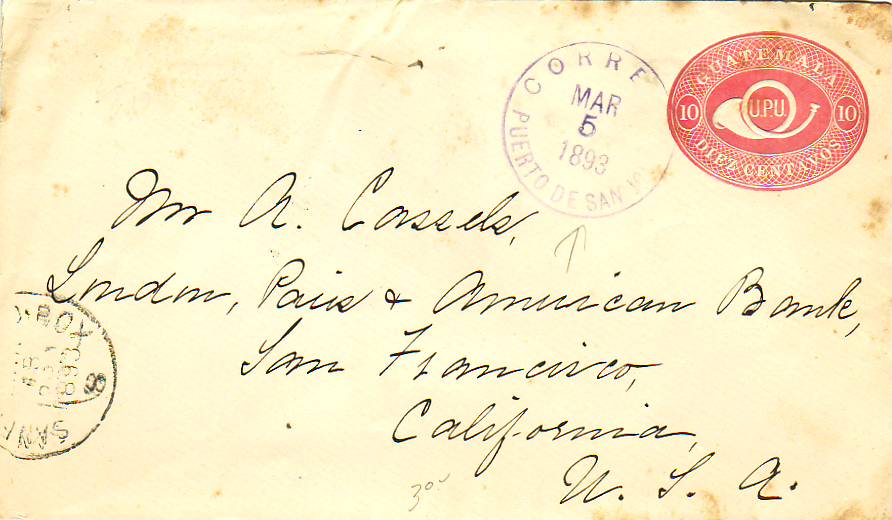 CORRE
MAR
5
1893
PUERTO DE SAN
GUATEMALA
10 U.P.U. 10
DIEZ CENTAVOS
Mr A. Cassels,
London, Paris & American Bank,
San Francisco,
California,
U. S. A.
BOX
8
SAN
30